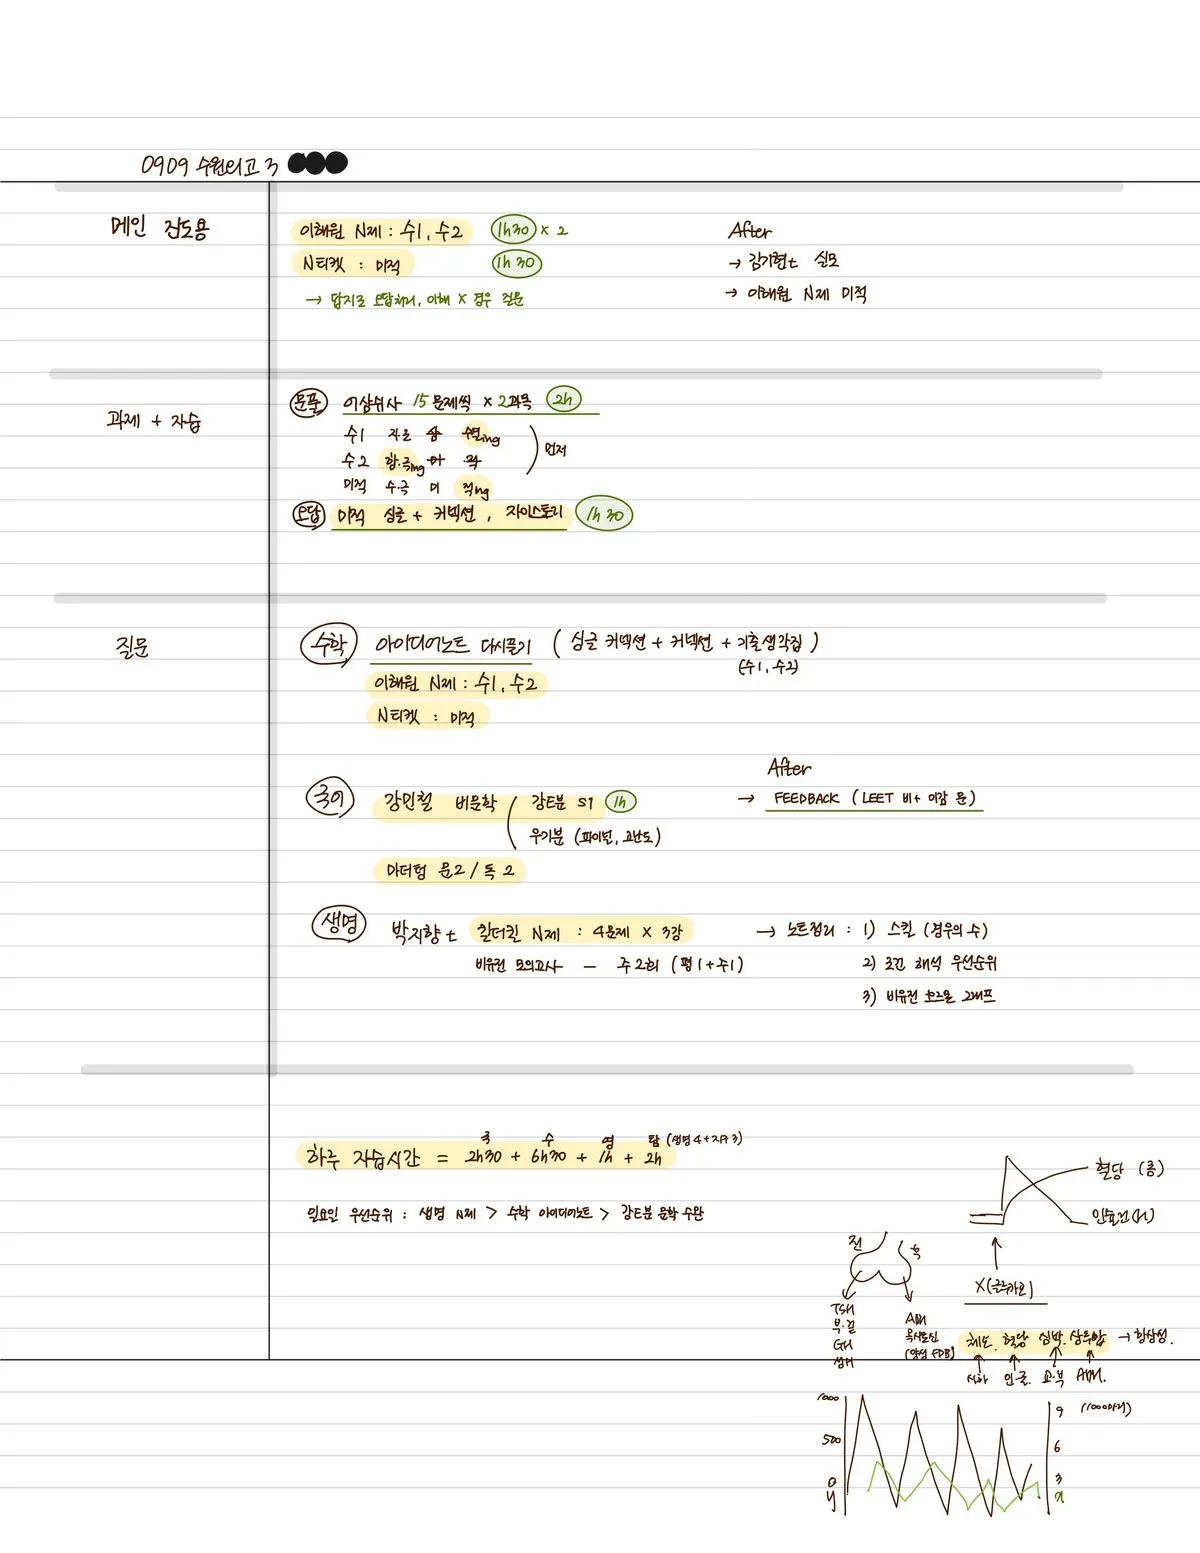 0909 수원외고3
메인 진도용
이해원 N제 : 수1, 수2 1h30 × 2
N티켓 : 미적 1h30
→ 답지로 오답처리, 이해 X 경우 질문
After
→ 김기현t 실모
→ 이해원 N제 미적
과제 + 자습
문풀 이삼쉬사 15문제씩 × 2과목 2h
수1 지·로 삼 수열ing
수2 함·극ing 미 적
미적 수·극 미 적ing
먼저
오답 미적 싱글 + 커넥션, 자이스토리 1h30
질문
수학 아이디어노트 다시풀기 (싱글 커넥션 + 커넥션 + 기출생각집)
(수1, 수2)
이해원 N제 : 수1, 수2
N티켓 : 미적
국어 강민철 비문학 강E분 S1 1h
우기분 (파이널, 고난도)
After
→ FEEDBACK (LEET 비 + 이감 문)
마더텅 문2 / 독2
생명 박지향t 킬더킬 N제 : 4문제 × 3강 → 노트정리 : 1) 스킬 (경우의 수)
비유전 모의고사 – 주2회 (평1+수1) 2) 조건 해석 우선순위
3) 비유전 호르몬 그래프
국 수 영 탐 (생명4+지구3)
하루 자습시간 = 2h30 + 6h30 + 1h + 2h
일요일 우선순위 : 생명 N제 > 수학 아이디어노트 > 강E분 문학 수완
혈당 (종)
인슐린(H)
X(글루카곤)
전 후
TSH
부·겉
GH
성H
ADH
옥시토신
(양성 FDB)
체온. 혈당 심박. 삼투압 → 항상성.
시하 인·글. 교·부 ADH.
1000
500
0
y
9
6
3
x
(1000마리)